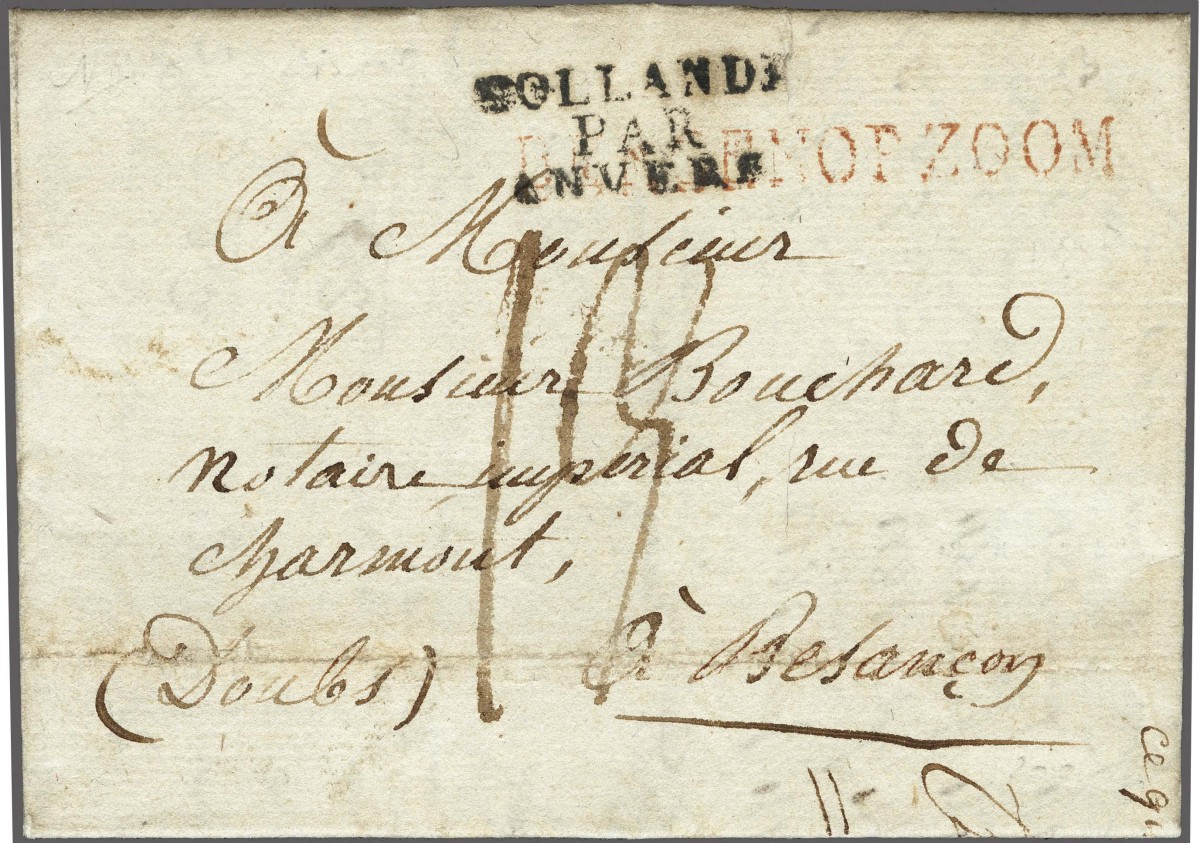 HOLLANDE
PAR
ANVERS
BERGENOPZOOM
À Monsieur
Monsieur Bouchard,
notaire impérial, rue de
charmont,
(Doubs) à Besançon